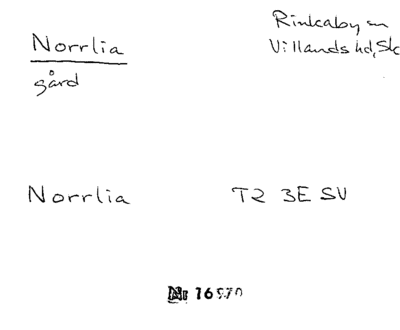 Norrlia
gård
Rinkaby sn
Villands hd, Sk
Norrlia
T2 3E SV
Nr 16970